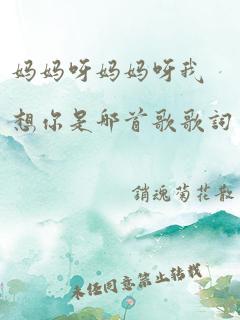 妈妈呀妈妈呀我
想你是那首歌歌詞
銷魂菊花散
未经同意禁止转载